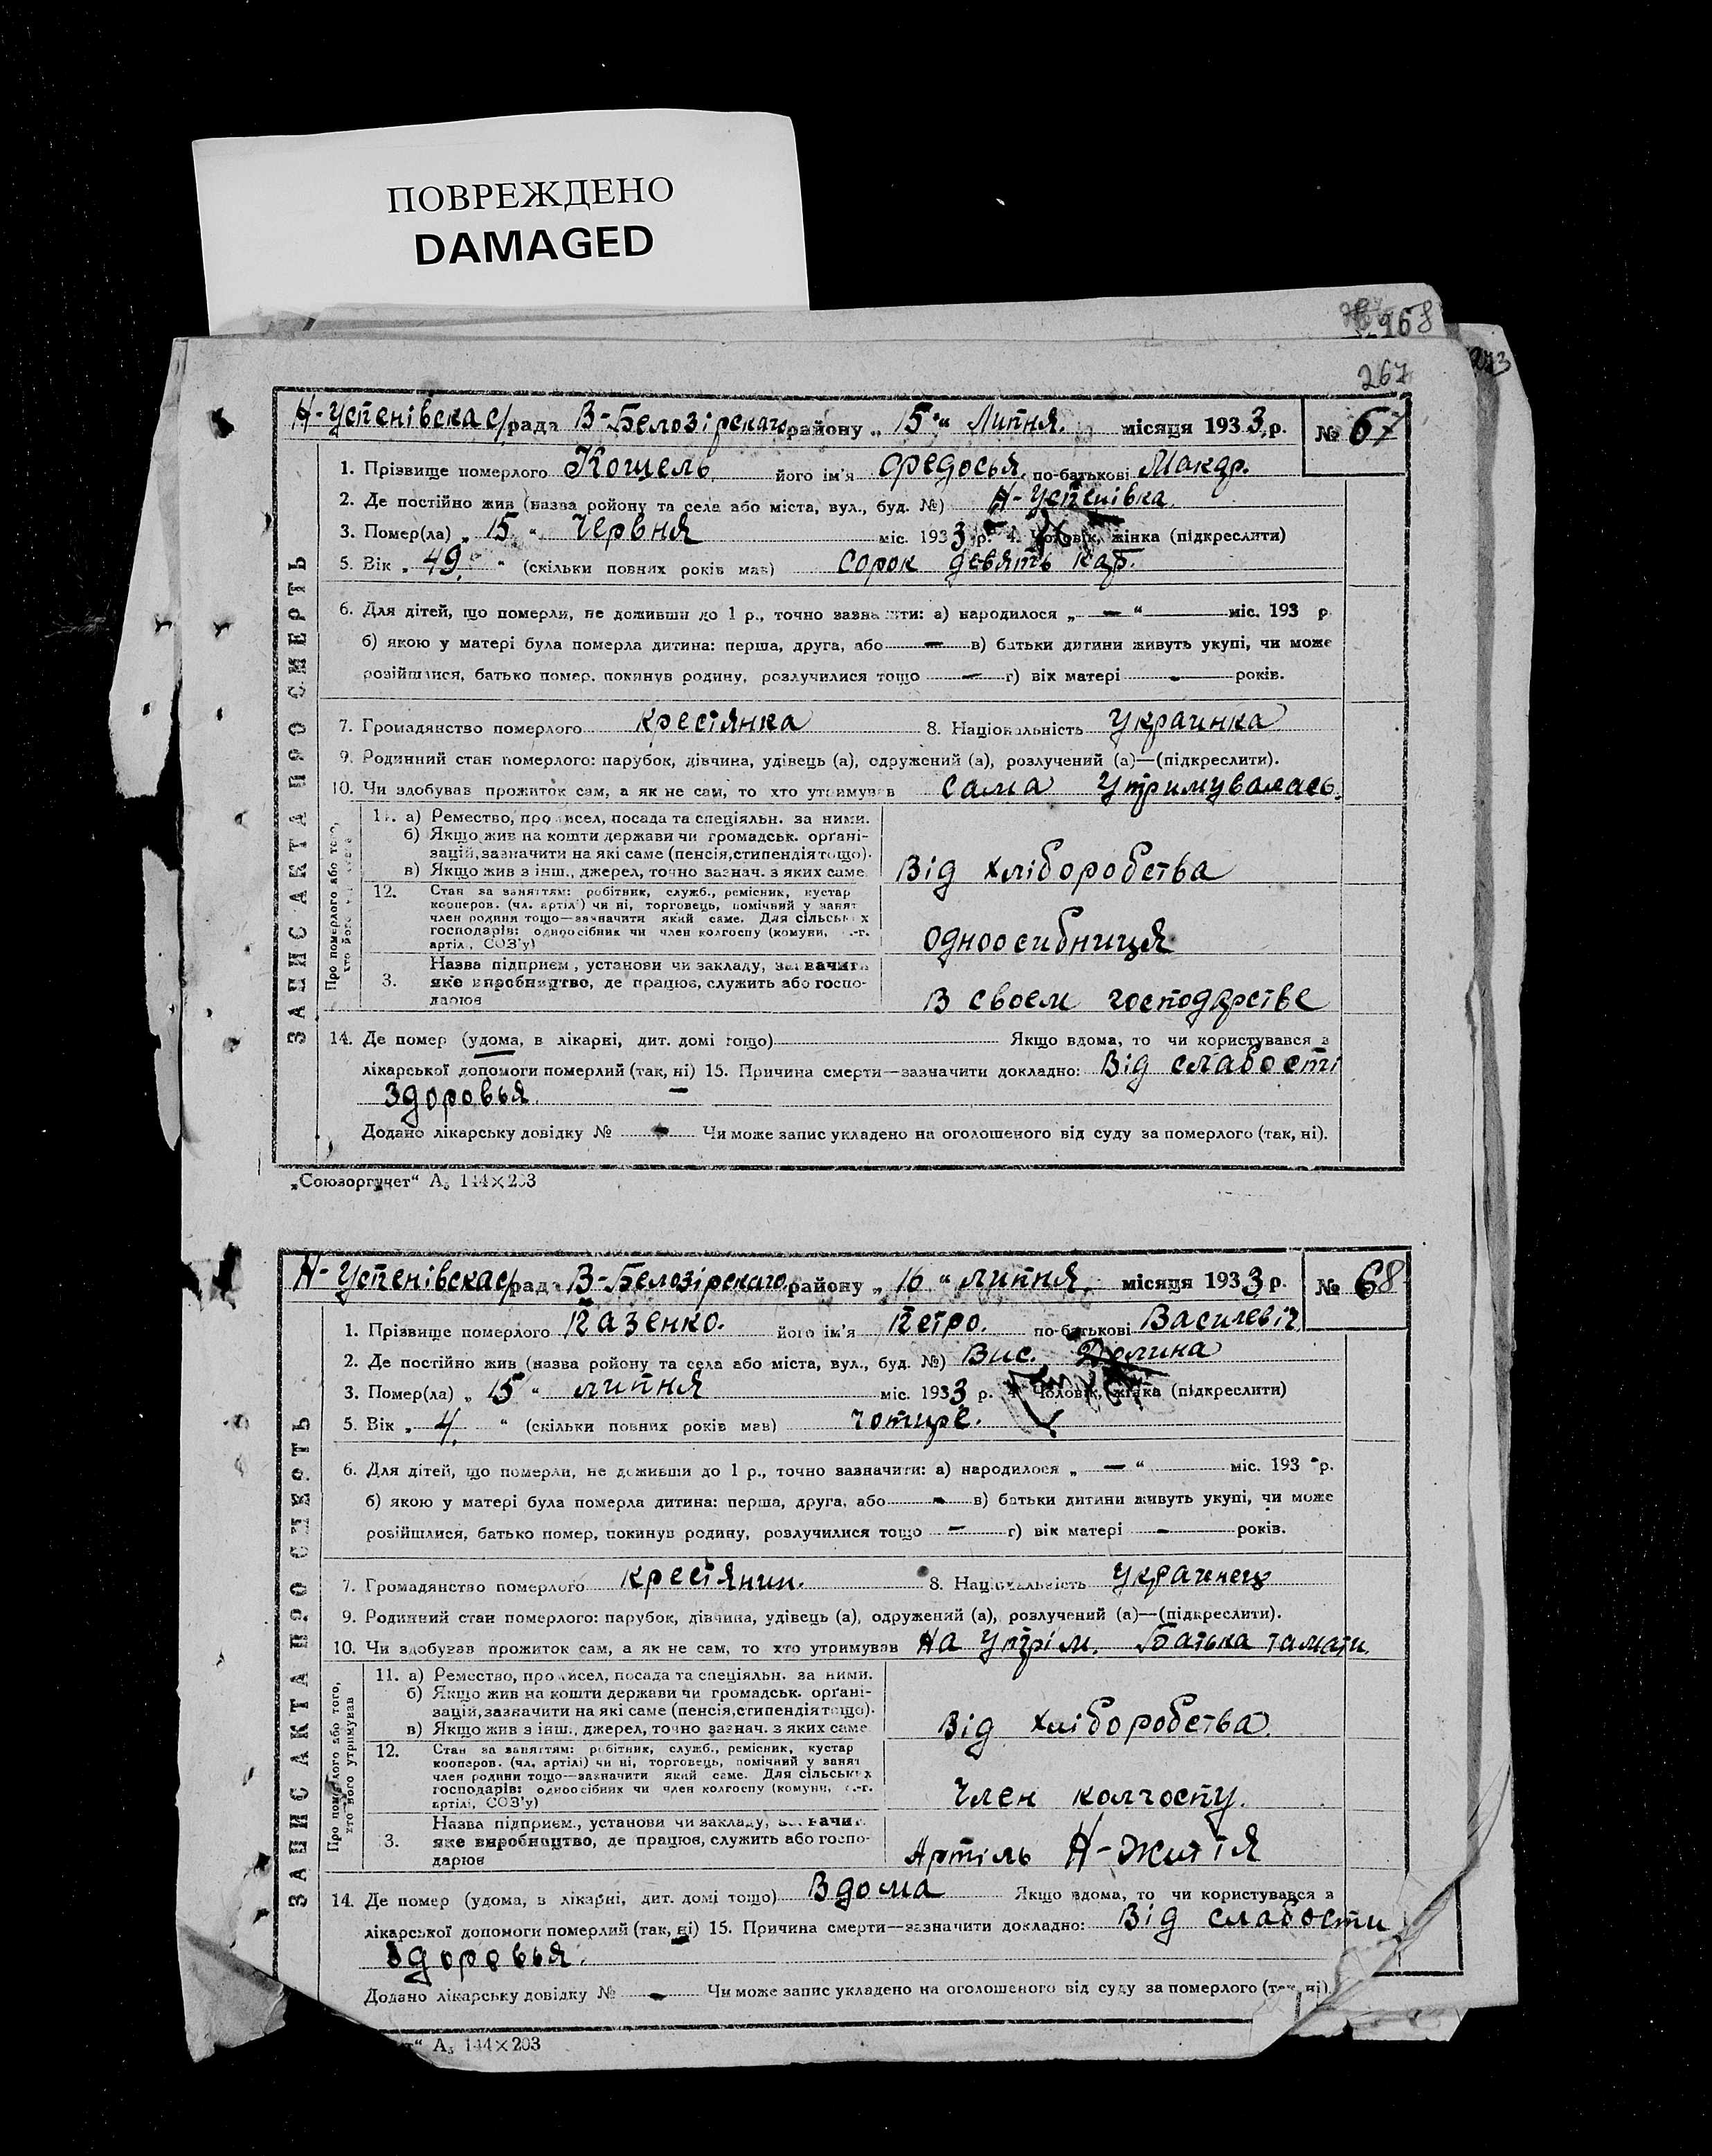 ПОВРЕЖДЕНО
DAMAGED
968
267
273
Н-Успенівска с/рада В-Белозірскаго району „15“ Липня місяця 1933 р. № 67
ЗАПИС АКТА ПРО СМЕРТЬ
1. Прізвище померлого Кошель його ім'я Федосья по-батькові Макар.
2. Де постійно жив (назва району та села або міста, вул., буд. №) Н-Успенівка
3. Помер(ла) „15“ Червня міс. 1933 р. 4. Чоловік, жінка (підкреслити)
5. Вік „49“ (скільки повних років мав) Сорок девять
6. Для дітей, що померли, не доживши до 1 р., точно зазначити: а) народилося „—“ міс. 193 р.
б) якою у матері була померла дитина: перша, друга, або — в) батьки дитини живуть укупі, чи може
розійшлися, батько помер, покинув родину, розлучилися тощо — г) вік матері — років.
7. Громадянство померлого крестянка 8. Національність Украинка
9. Родинний стан померлого: парубок, дівчина, удівець (а), одружений (а), розлучений (а)—(підкреслити).
10. Чи здобував прожиток сам, а як не сам, то хто утримував сама Утримувалась.
Про померлого або того,
хто його
11. а) Ремество, промисел, посада та спеціяльн. за ними.
б) Якщо жив на кошти держави чи громадськ. органі-
зацій, зазначити на які саме (пенсія, стипендія тощо).
в) Якщо жив з інш., джерел, точно зазнач. з яких саме
Від хліборобства
12. Стан за заняттям: робітник, служб., ремісник, кустар
кооперов. (чл. артілі) чи ні, торговець, помічний у занят
член родини тощо—зазначити який саме. Для сільських
господарів: одноосібник чи член колгоспу (комуни, с.-г.
артілі, СОЗ'у)
одноосибниця
3. Назва підприєм., установи чи закладу, зазначити
яке виробництво, де працює, служить або госпо-
дарює
В своем господарстве
14. Де помер (удома, в лікарні, дит. домі тощо) Якщо вдома, то чи користувався з
лікарської допомоги померлий (так, ні) 15. Причина смерти—зазначити докладно: Від слабості
Здоровья. —
Додано лікарську довідку № — Чи може запис укладено на оголошеного від суду за померлого (так, ні).
„Союзоргучет“ А₅ 144×203
Н-Успенівска с/рада В-Белозірскаго району „16“ липня місяця 1933 р. № 68
ЗАПИС АКТА ПРО СМЕРТЬ
1. Прізвище померлого Пазенко. його ім'я Петро. по-батькові Василевіч
2. Де постійно жив (назва району та села або міста, вул., буд. №) Вис. Долина
3. Помер(ла) „15“ липня міс. 1933 р. 4. Чоловік, жінка (підкреслити)
5. Вік „4“ (скільки повних років мав) чотире.
6. Для дітей, що померли, не доживши до 1 р., точно зазначити: а) народилося „—“ міс. 193 р.
б) якою у матері була померла дитина: перша, друга, або — в) батьки дитини живуть укупі, чи може
розійшлися, батько помер, покинув родину, розлучилися тощо — г) вік матері — років.
7. Громадянство померлого крестянин. 8. Національність Украинец
9. Родинний стан померлого: парубок, дівчина, удівець (а), одружений (а), розлучений (а)—(підкреслити).
10. Чи здобував прожиток сам, а як не сам, то хто утримував На Утрім. батька та мати.
Про померлого або того,
хто його утримував
11. а) Ремество, промисел, посада та спеціяльн. за ними.
б) Якщо жив на кошти держави чи громадськ. органі-
зацій, зазначити на які саме (пенсія, стипендія тощо).
в) Якщо жив з інш., джерел, точно зазнач. з яких саме
Від хліборобства.
12. Стан за заняттям: робітник, служб., ремісник, кустар
кооперов. (чл. артілі) чи ні, торговець, помічний у занят
член родини тощо—зазначити який саме. Для сільських
господарів: одноосібник чи член колгоспу (комуни, с.-г.
артілі, СОЗ'у)
Член колгоспу.
3. Назва підприєм., установи чи закладу, зазначит
яке виробництво, де працює, служить або госпо-
дарює
Артіль Н-Життя
14. Де помер (удома, в лікарні, дит. домі тощо) Вдома Якщо вдома, то чи користувався з
лікарської допомоги померлий (так, ні) 15. Причина смерти—зазначити докладно: Від слабости
здоровья.
Додано лікарську довідку № — Чи може запис укладено на оголошеного від суду за померлого (так, ні).
т“ А₅ 144×203